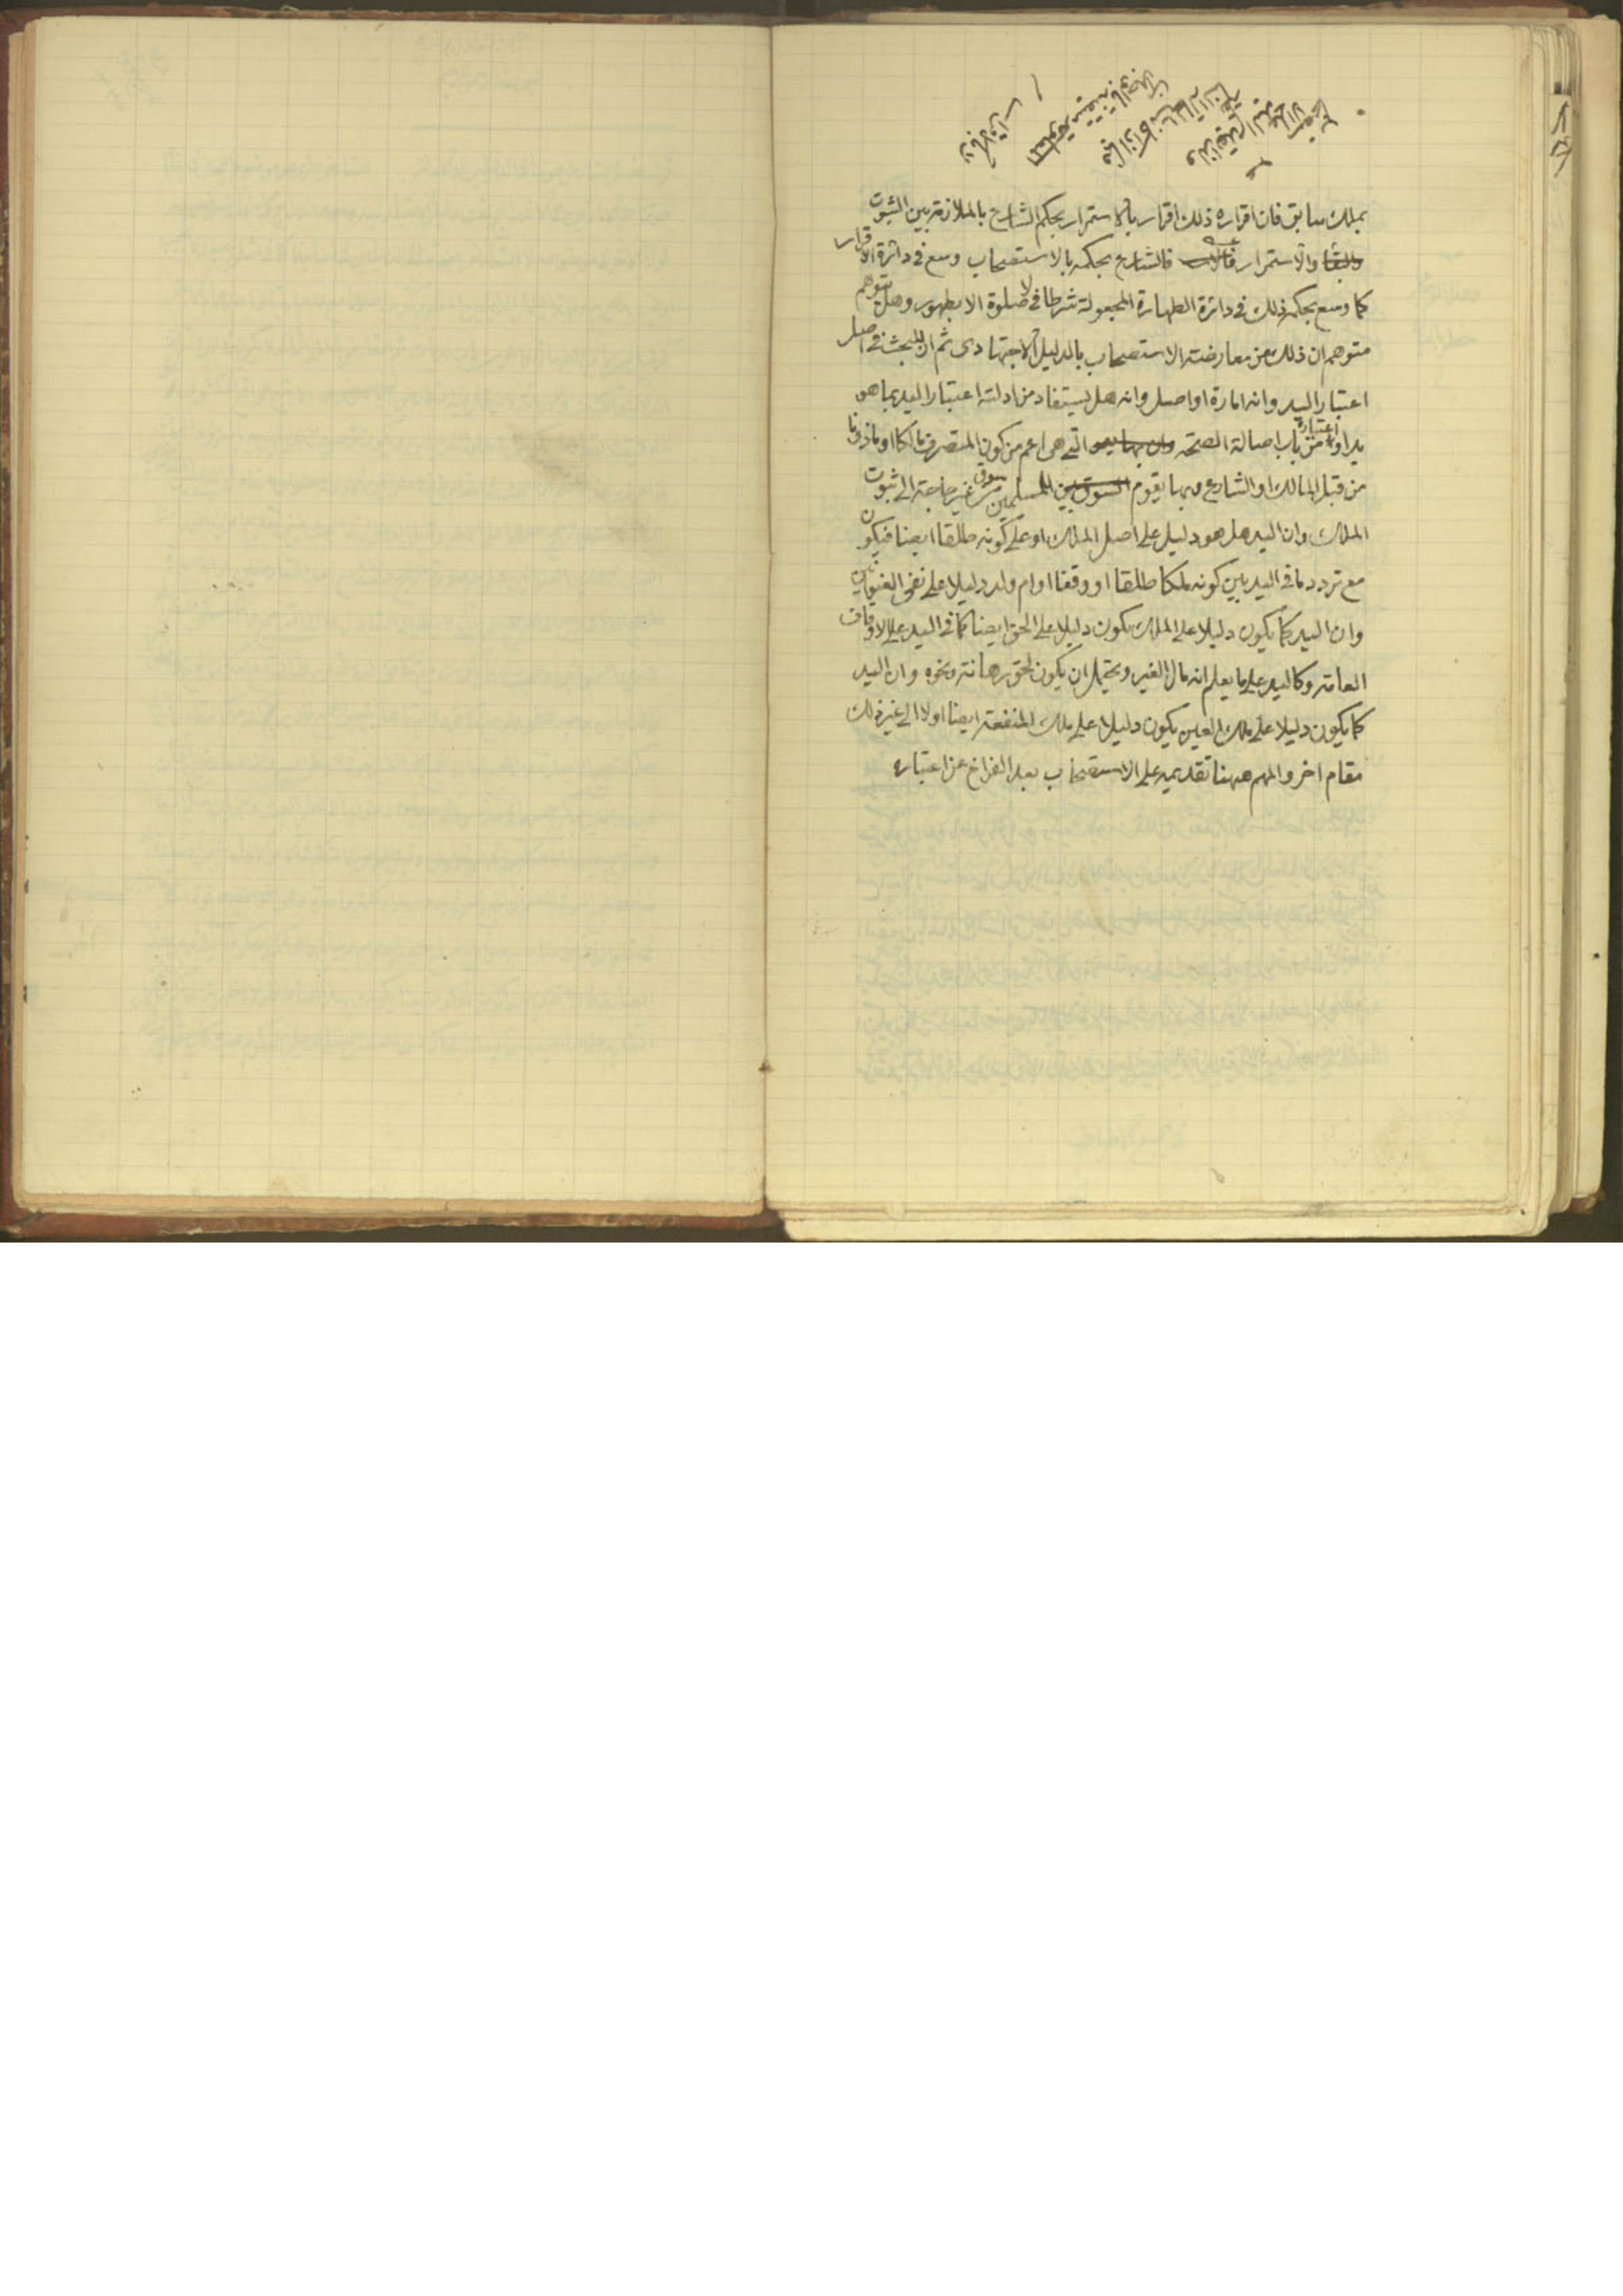 بملك سابق فان اقراره ذلك اقرار بالاستمرار بحكم الشارع بالملازمة بين الثبوت
والاستمرار فالشارع بحكمه بالاستصحاب وسع في دائرة الاقرار
كما وسع بحكمه ذلك في دائرة الطهارة المجعولة شرطا في لا صلوة الا بطهور وهل يتوهم
متوهم ان ذلك من معارضة الاستصحاب بالدليل الاجتهادى ثم ان للبحث في اصل
اعتبار اليد وانه امارة او اصل وانه هل يستفاد من ادلته اعتبار اليد بما هو
يد او اعتباره من باب اصالة الصحة التي هى اعم من كون المتصرف مالكا او ماذونا
من قبل المالك او الشارع وبها يقوم سوق المسلمين من غير حاجة الى ثبوت
الملك وان اليد هل هو دليل على اصل الملك او على كونه طلقا ايضا فيكون
مع تردد ما في اليد بين كونه ملكا طلقا او وقفا او ام ولد دليلا على نفى
وان اليد كما يكون دليلا على الملك يكون دليلا على الحق ايضا كما في اليد على الاوقاف
العامة وكاليد على ما يعلم انه مال الغير ويحتمل ان يكون لحق رهانة ونحوه وان اليد
كما يكون دليلا على ملك العين يكون دليلا على ملك المنفعة ايضا اولا الى غير ذلك
مقام اخر والمهم ههنا تقديمه على الاستصحاب بعد الفراغ عن اعتباره